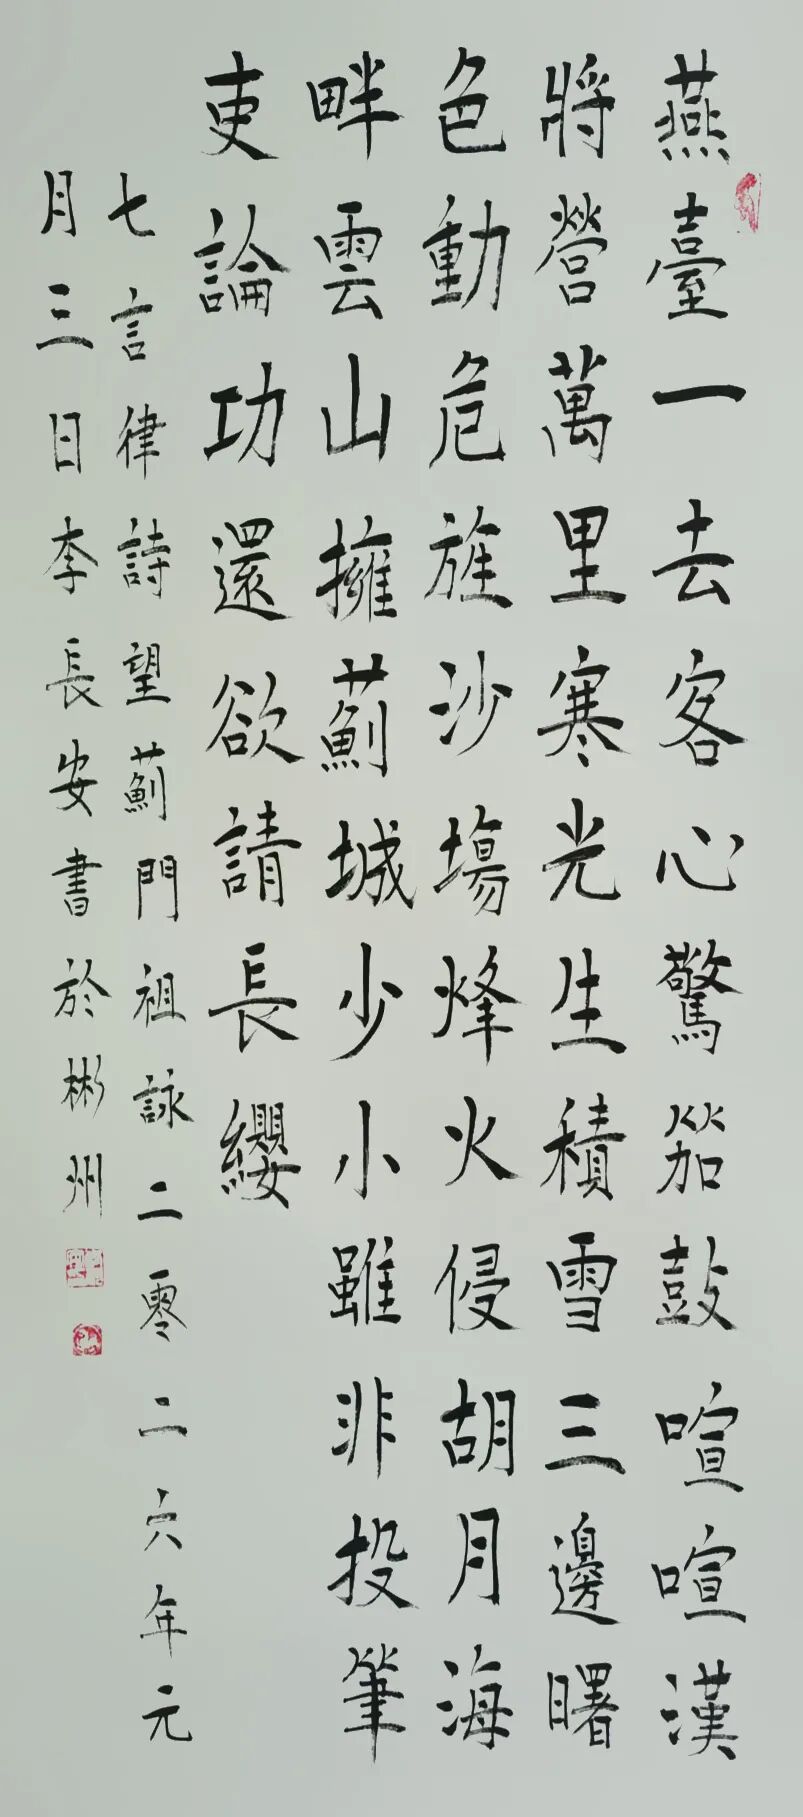 燕臺一去客心驚笳鼓喧喧漢
將營萬里寒光生積雪三邊曙
色動危旌沙場烽火侵胡月海
畔雲山擁薊城少小雖非投筆
吏論功還欲請長纓
七言律詩望薊門祖詠二零二六年元
月三日李長安書於彬州